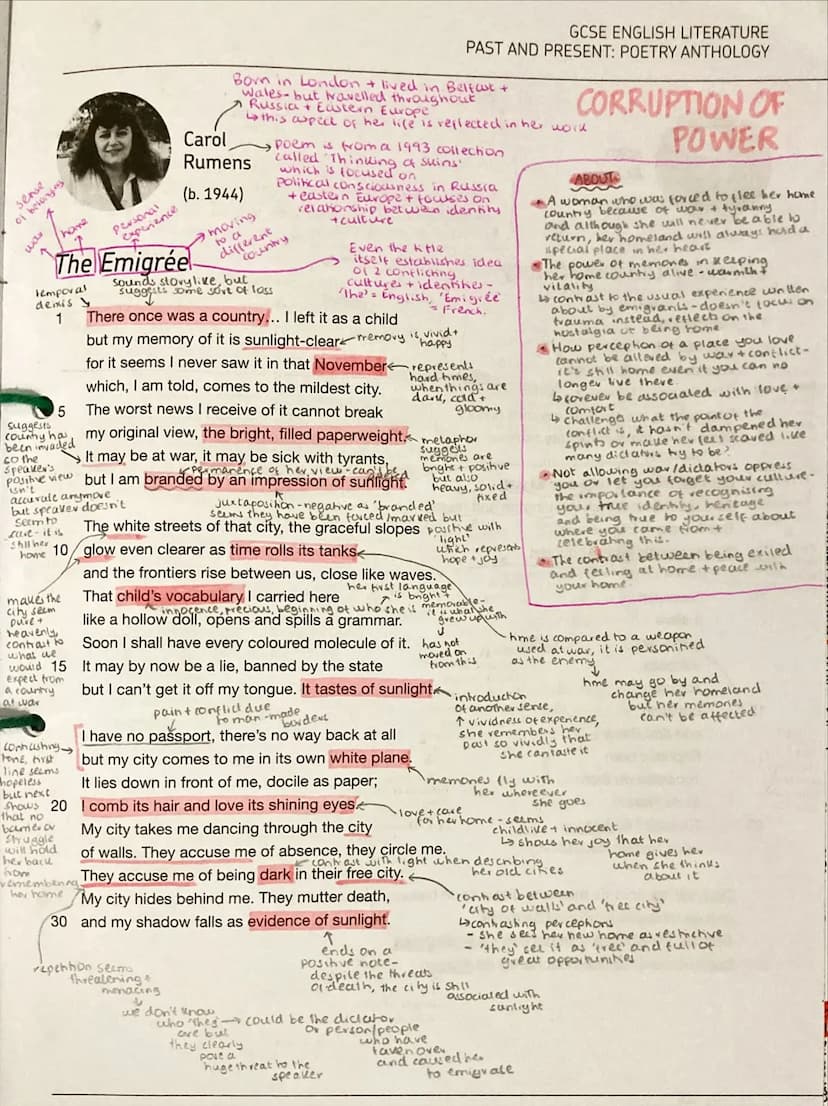 GCSE ENGLISH LITERATURE
PAST AND PRESENT: POETRY ANTHOLOGY
CORRUPTION OF
POWER
Born in London + lived in Belfast +
Wales - but travelled throughout
Russia + Eastern Europe
↳ this aspect of her life is reflected in her work
Carol
Rumens
(b. 1944)
Poem is from a 1993 collection
called 'Thinking of Skins'
which is focused on
political consciousness in Russia
+ eastern Europe + focuses on
relationship between identity
+ culture
sense
of belonging
war
home
personal
experience
moving
to a
different
country
The Emigrée
Even the title
itself establishes idea
of 2 conflicting
cultures + identities -
'The' = English, 'Emigrée'
= French.
ABOUT:
A woman who was forced to flee her home
country because of war + tyranny
and although she will never be able to
return, her homeland will always hold a
special place in her heart
The power of memories in keeping
her home country alive - warmth +
vitality
↳ contrast to the usual experience written
about by emigrants - doesn't focus on
trauma instead, reflects on the
nostalgia of being home
How perception of a place you love
cannot be altered by war + conflict -
it's still home even if you can no
longer live there
↳ forever be associated with love +
comfort
↳ challenge what the point of the
conflict is, it hasn't dampened her
spirits or made her feel scared like
many dictators try to be?
Not allowing war/dictators oppress
you or let you forget your culture -
the importance of recognising
your true identity, heritage
and being true to yourself about
where you came from +
celebrating this.
The contrast between being exiled
and feeling at home + peace with
your home.
temporal
deixis
sounds storylike, but
suggests some sort of loss
1 There once was a country… I left it as a child
but my memory of it is sunlight-clear
memory is vivid +
happy
for it seems I never saw it in that November
represents
hard times,
when things are
dark, cold +
gloomy
which, I am told, comes to the mildest city.
5 The worst news I receive of it cannot break
my original view, the bright, filled paperweight.
metaphor
suggests
memories are
bright + positive
but also
heavy, solid +
fixed
suggests
country has
been invaded
so the
speaker's
positive view
isn't
accurate anymore
but speaker doesn't
seem to
care - it is
still her
home
It may be at war, it may be sick with tyrants,
permanence of her view - can't be
but I am branded by an impression of sunlight.
juxtaposition - negative as 'branded'
seems they have been forced/marked but
positive with
'light'
which represents
hope + joy
The white streets of that city, the graceful slopes
10 glow even clearer as time rolls its tanks
and the frontiers rise between us, close like waves.
her first language
is bright +
memorable -
it is what she
grew up with
has not
moved on
from this
That child's vocabulary I carried here
innocence, precious, beginning of who she is
like a hollow doll, opens and spills a grammar.
Soon I shall have every coloured molecule of it.
15 It may by now be a lie, banned by the state
but I can't get it off my tongue. It tastes of sunlight.
makes the
city seem
pure +
heavenly
contrast to
what we
would
expect from
a country
at war
time is compared to a weapon
used at war, it is personified
as the enemy
time may go by and
change her homeland
but her memories
can't be affected
introduction
of another sense,
↑ vividness of experience,
she remembers her
past so vividly that
she can taste it
pain + conflict due
to man-made
borders
I have no passport, there's no way back at all
but my city comes to me in its own white plane.
contrasting
tone, first
line seems
hopeless
but next
shows
that no
barrier or
struggle
will hold
her back
from
remembering
her home
memories fly with
her wherever
she goes
It lies down in front of me, docile as paper;
20 I comb its hair and love its shining eyes.
love + care
for her home - seems
childlike + innocent
↳ shows her joy that her
home gives her
when she thinks
about it
My city takes me dancing through the city
of walls. They accuse me of absence, they circle me.
contrast with light when describing
her old cities
They accuse me of being dark in their free city.
My city hides behind me. They mutter death,
30 and my shadow falls as evidence of sunlight.
contrast between
'city of walls' and 'free city'
↳ contrasting perceptions
- she sees her new home as restrictive
- 'they' see it as 'free' and full of
great opportunities
ends on a
positive note -
despite the threats
of death, the city is still
associated with
sunlight
repetition seems
threatening +
menacing
we don't know
who 'they'
are but
they clearly
pose a
huge threat to the
speaker
could be the dictator
or person/people
who have
taken over
and caused her
to emigrate